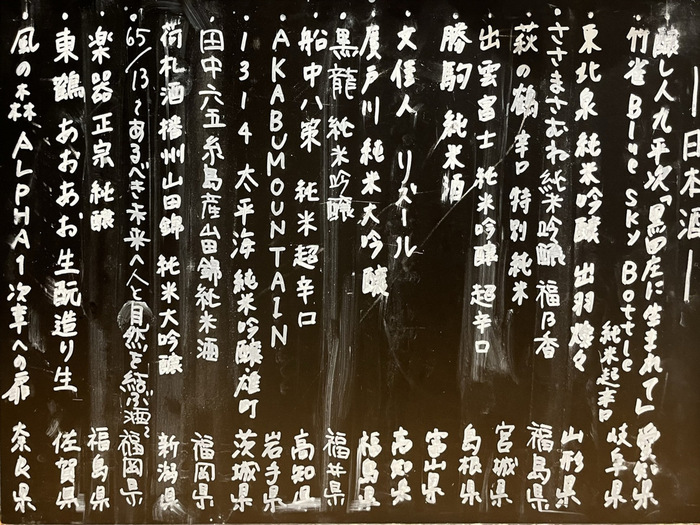 ー日本酒ー
・醸し人九平次「黒田庄に生まれて」 愛知県
・竹雀 Blue Sky Bottle 純米超辛口 岐阜県
・東北泉 純米吟醸 出羽燦々 山形県
・ささまさむね 純米吟醸 福乃香 福島県
・萩の鶴 辛口 特別純米 宮城県
・出雲富士 純米吟醸 超辛口 島根県
・勝駒 純米酒 富山県
・文佳人 リズール 高知県
・廣戸川 純米大吟醸 福島県
・黒龍 純米吟醸 福井県
・船中八策 純米超辛口 高知県
・AKABUMOUNTAIN 岩手県
・1314 太平海 純米吟醸・雄町 茨城県
・田中六五 糸島産山田錦純米酒 福岡県
・荷札酒 播州山田錦 純米大吟醸 新潟県
・65/13 "あるべき未来へ人と自然を結ぶ酒" 福岡県
・楽器正宗 純醸 福島県
・東鶴 あおあお 生酛造り生 佐賀県
・風の森 ALPHA1 次章への扉 奈良県